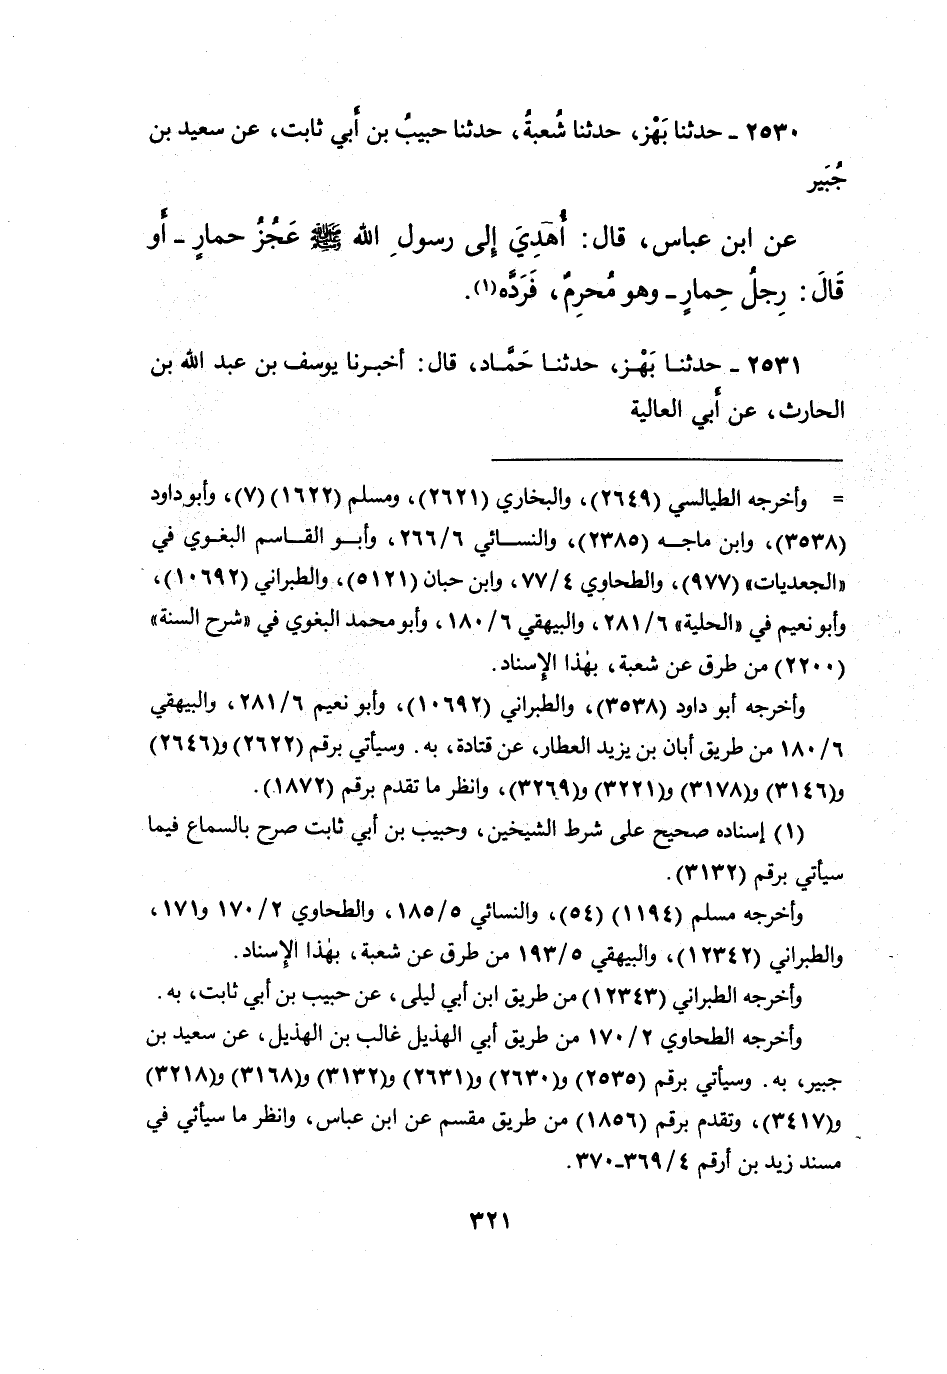 ٢٥٣٠ ـ حدثنا بَهْز، حدثنا شُعبةُ، حدثنا حبيبُ بن أَبي ثابت، عن سعيد بن
جُبَير
عن ابن عباس، قال: أُهْدِيَ إِلى رسولِ الله ﷺ عَجُزُ حمارٍ ـ أَو
قَالَ: رِجلُ حِمارٍ ـ وهو مُحرِمٌ، فَرَدَّه(١).
٢٥٣١ ـ حدثنـا بَهْـز، حدثنـا حَمَّـاد، قال: أخبـرنا يوسف بن عبد الله بن
الحارث، عن أَبي العالية
= وأخرجه الطيالسي (٢٦٤٩)، والبخاري (٢٦٢١)، ومسلم (١٦٢٢) (٧)، وأبو داود
(٣٥٣٨)، وابن ماجـه (٢٣٨٥)، والنسـائي ٢٦٦/٦، وأبـو القـاسم البغـوي في
«الجعديات» (٩٧٧)، والطحاوي ٧٧/٤، وابن حبان (٥١٢١)، والطبراني (١٠٦٩٢)،
وأبو نعيم في «الحلية» ٢٨١/٦، والبيهقي ١٨٠/٦، وأبو محمد البغوي في «شرح السنة»
(٢٢٠٠) من طرق عن شعبة، بهٰذا الإِسناد.
وأخرجه أبو داود (٣٥٣٨)، والطبراني (١٠٦٩٢)، وأبو نعيم ٢٨١/٦، والبيهقي
١٨٠/٦ من طريق أبان بن يزيد العطار، عن قتادة، به. وسيأتي برقم (٢٦٢٢) و(٢٦٤٦)
و(٣١٤٦) و(٣١٧٨) و(٣٢٢١) و(٣٢٦٩)، وانظر ما تقدم برقم (١٨٧٢).
(١) إسناده صحيح على شرط الشيخين، وحبيب بن أبي ثابت صرح بالسماع فيما
سيأتي برقم (٣١٣٢).
وأخرجه مسلم (١١٩٤) (٥٤)، والنسائي ١٨٥/٥، والطحاوي ١٧٠/٢ و١٧١،
والطبراني (١٢٣٤٢)، والبيهقي ١٩٣/٥ من طرق عن شعبة، بهٰذا الإِسناد.
وأخرجه الطبراني (١٢٣٤٣) من طريق ابن أبي ليلى، عن حبيب بن أبي ثابت، به.
وأخرجه الطحاوي ١٧٠/٢ من طريق أبي الهذيل غالب بن الهذيل، عن سعيد بن
جبير، به. وسيأتي برقم (٢٥٣٥) و(٢٦٣٠) و(٢٦٣١) و(٣١٣٢) و(٣١٦٨) و(٣٢١٨)
و(٣٤١٧)، وتقدم برقم (١٨٥٦) من طريق مقسم عن ابن عباس، وانظر ما سيأتي في
مسند زيد بن أرقم ٣٦٩/٤ـ٣٧٠.
٣٢١